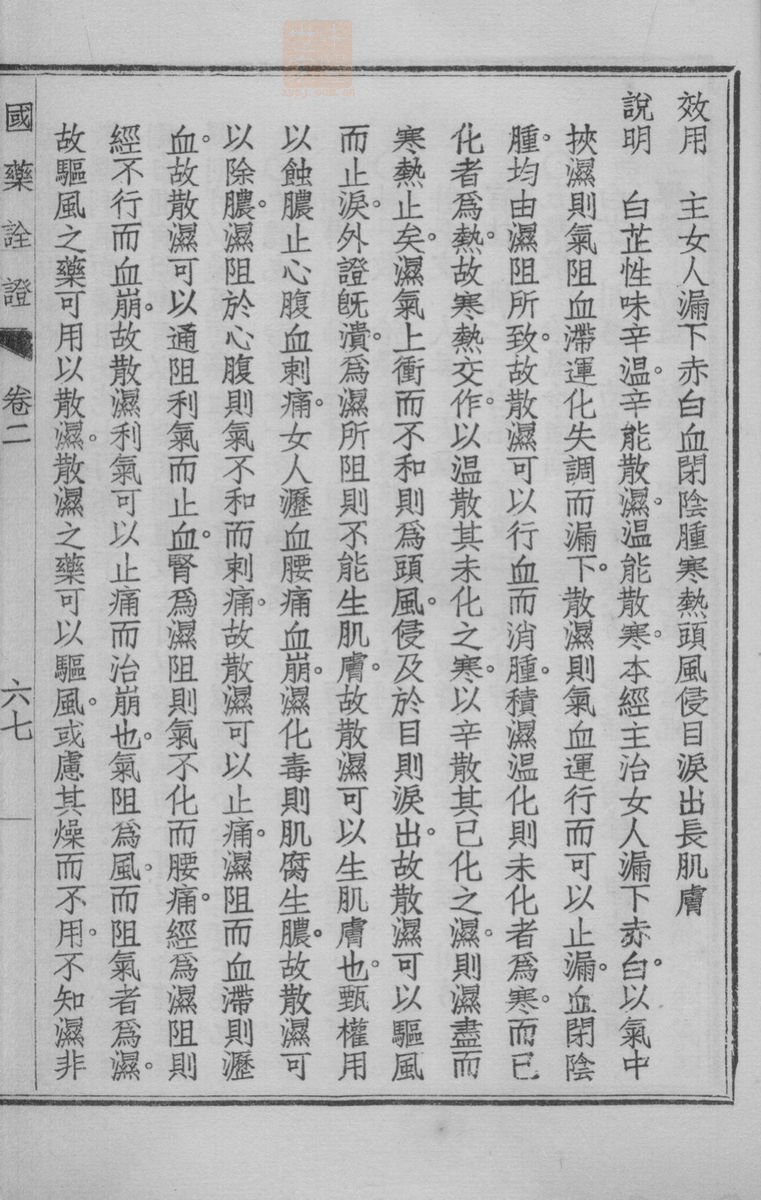 效用　主女人漏下赤白血閉陰腫寒熱頭風侵目淚出長肌膚
說明　白芷性味辛温。辛能散濕。温能散寒。本經主治女人漏下赤白。以氣中
挾濕則氣阻血滯運化失調而漏下。散濕則氣血運行而可以止漏。血閉陰
腫。均由濕阻所致。故散濕可以行血而消腫。積濕温化則未化者爲寒。而已
化者爲熱。故寒熱交作。以温散其未化之寒。以辛散其已化之濕。則濕盡而
寒熱止矣。濕氣上衝而不和則爲頭風。侵及於目則淚出。故散濕可以驅風
而止淚。外證旣潰。爲濕所阻則不能生肌膚。故散濕可以生肌膚也。甄權用
以蝕膿止心腹血刺痛。女人瀝血腰痛血崩。濕化毒則肌腐生膿。故散濕可
以除膿。濕阻於心腹則氣不和而刺痛。故散濕可以止痛。濕阻而血滯則瀝
血。故散濕可以通阻利氣而止血。腎爲濕阻則氣不化而腰痛。經爲濕阻則
經不行而血崩。故散濕利氣可以止痛而治崩也。氣阻爲風。而阻氣者爲濕。
故驅風之藥可用以散濕。散濕之藥可以驅風。或慮其燥而不用。不知濕非
國藥詮證　卷二　六七